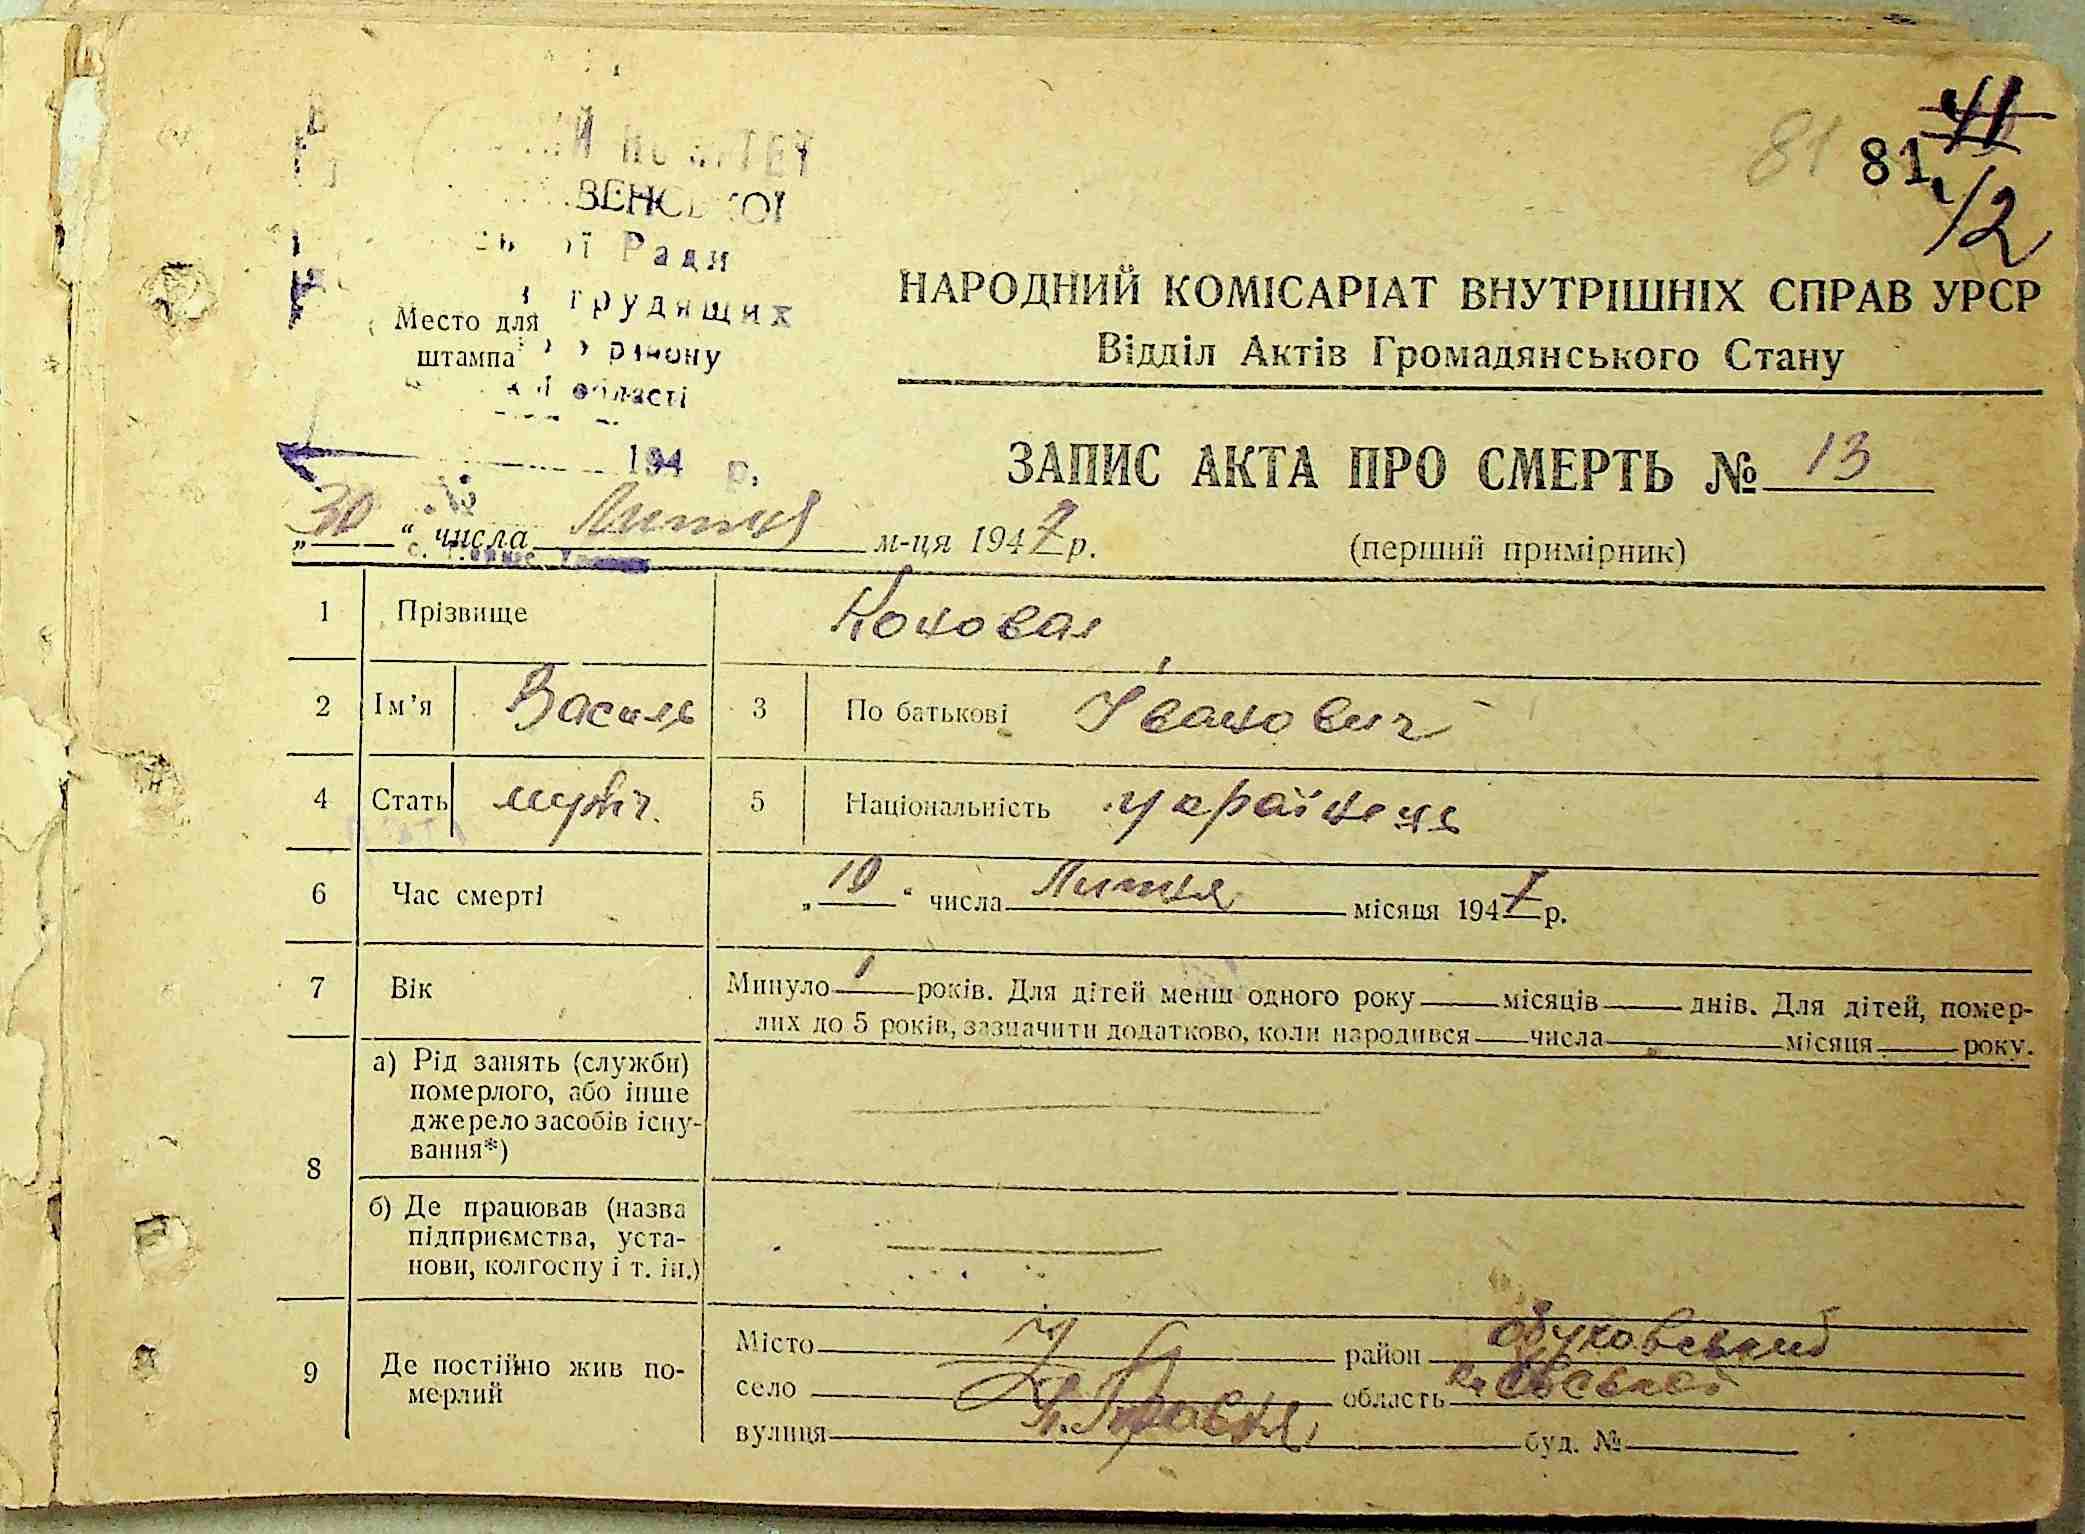 81 81 41
42
ВЕНСЬКОЇ
Ради
трудящих
Место для
штампа
району
області
194 р.
НАРОДНИЙ КОМІСАРІАТ ВНУТРІШНІХ СПРАВ УРСР
Відділ Актів Громадянського Стану
ЗАПИС АКТА ПРО СМЕРТЬ № 13
„30“ числа Липня м-ця 1947 р.
(перший примірник)
1 Прізвище Коновал
2 Ім'я Василь 3 По батькові Іванович
4 Стать мужч. 5 Національність українець
6 Час смерті „10“ числа Липня місяця 1947 р.
7 Вік Минуло 1 років. Для дітей менш одного року місяців днів. Для дітей, помер-
лих до 5 років, зазначити додатково, коли народився числа місяця року.
8 а) Рід занять (служби)
померлого, або інше
джерело засобів існу-
вання*)
б) Де працював (назва
підприємства, уста-
нови, колгоспу і т. ін.)
9 Де постійно жив по-
мерлий
Місто район Обуховський
село область Київської
вулиця буд. №